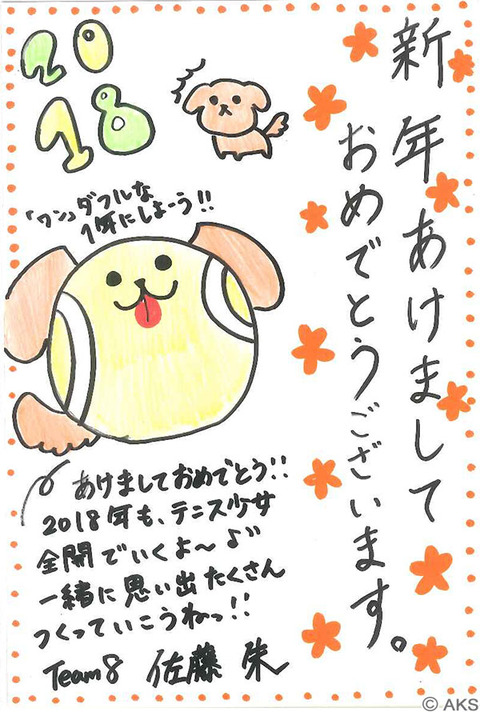 新年あけまして
おめでとうございます。
20
18
「ワン」ダフルな
1年にしよーう!!
あけましておめでとう!!
2018年も、テニス少女
全開でいくよ〜♪
一緒に思い出たくさん
つくっていこうねっ!!
Team8 佐藤 朱
© AKS